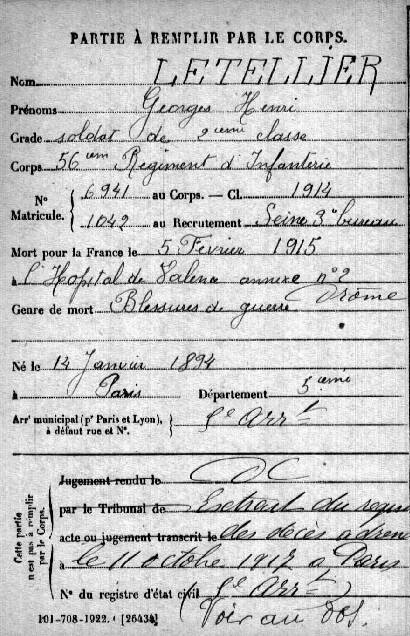 PARTIE À REMPLIR PAR LE CORPS.
Nom LETELLIER
Prénoms Georges Henri
Grade soldat de 2ieme classe
Corps 56 iem Regiment d'Infanterie
N° Matricule. 6941 au Corps. — Cl. 1914
1042 au Recrutement Seine 3e bureau
Mort pour la France le 5 Fevrier 1915
à l'Hopital de Valence annexe n°2
Drôme
Genre de mort Blessures de guerre
Né le 14 Janvier 1894
à Paris Département 5 ieme
Arrt municipal (pr Paris et Lyon), à défaut rue et N°. Arrt
Cette partie n'est pas à remplir par le Corps.
Jugement rendu le
par le Tribunal de Extrait du
acte ou jugement transcrit le des décès
à le 11 octobre 1917 à Paris
N° du registre d'état civil Arrt
Voir au dos.
101-708-1922. [26434]